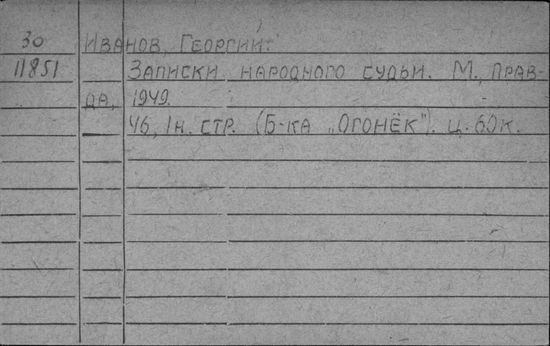 30 Иванов, Георгий.
11851 Записки народного судьи. М., Прав-
да, 1949.
46, 1н. стр. (Б-ка „Огонёк"). ц. 60 к.